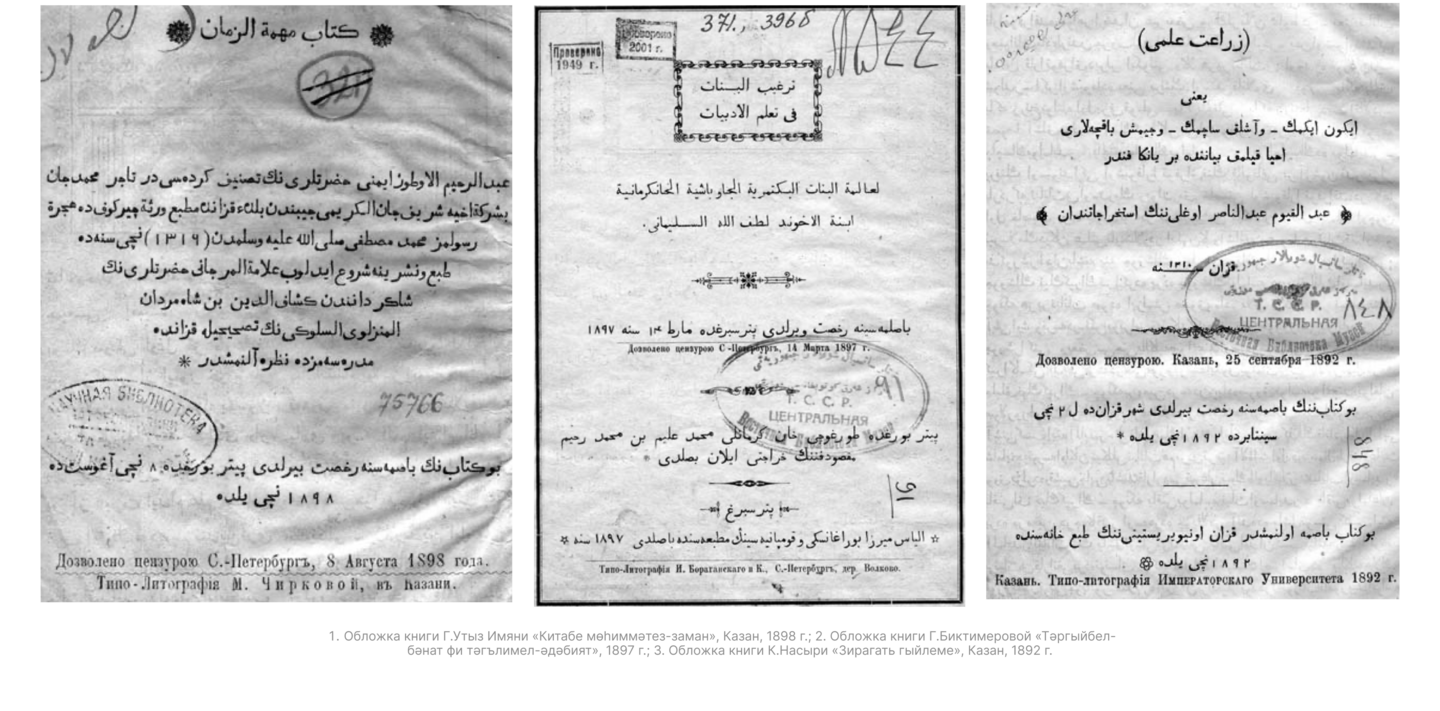 كتاب مهمة الزمان
321
عبدالرحيم الاوطوز ايمنى حضرتلرى نك تصنيف كرده سى در تاجر محمدجان
بشركة اخيه شريف جان الكريمى جيبندن بلدهء قزاننك مطبع ورثهٔ چيركوف ده هجرة
رسولمز محمد مصطفى صلى الله عليه وسلمدن (١٣١٩) نچى سنه ده
طبع ونشرينه شروع ايدلوب علامة المرجانى حضرتلرى نك
شاكردانندن كشاف الدين بن شاه مردان
المنزلوى السلوكى نك تصحيحيله قزانده
مدرسه مزده نظره آلنمشدر *
НАУЧНАЯ БИБЛИОТЕКА
75766
بو كتاب نك باصمه سنه رخصت بيرلدى پيتر بورغده ٨ نچى آغوست ده
١٨٩٨ نچى يلده
Дозволено цензурою С.-Петербургъ, 8 Августа 1898 года.
Типо-Литографія М. Чирковой, въ Казани.
371., 3968
Проверено
1949 г.
2001 г.
ترغيب البنات
فى تعلم الادبيات
لعالمة البنات البكتمرية الجاوباشية الخانكرمانية
ابنة الاخوند لطف الله السليمانى.
باصلمه سينه رخصت ويرلدى پترسبرغده مارط ١٤ سنه ١٨٩٧
Дозволено цензурою С-Петербургъ, 14 Марта 1897 г.
Т. С. С. Р.
ЦЕНТРАЛЬНАЯ
Восточная Библиотека
91
پيتر بورغده طورغوچى خان كرمانلى محمد عليم بن محمد رحيم
مقصودفننك خراجتى ايلان بصلدى *
91
پترسبرغ
☆ الياس ميرزا بوراغانسكى وقومپانيه سينك مطبعه سنده باصلدى ١٨٩٧ سنه ☆
Типо-Литографія И. Бораганскаго и К., С.-Петербургъ, дер. Волково.
(زراعت علمى)
يعنى
ايكون ايكمك ـ وآشلق ساچمك ـ وجيمش باقچه لارى
احيا قيلمق بياننده بر يانكا فندر
عبد القيوم عبدالناصر اوغلى ننك استخراجاتندان
قزان ١٣١٠ سنه
Т. С. С. Р.
ЦЕНТРАЛЬНАЯ
Восточная Библиотека Музей
٨٤٨
Дозволено цензурою. Казань, 25 сентября 1892 г.
بو كتاب ننك باصمه سنه رخصت بيرلدى شهر قزان ده ل ٢ نچى
سينتابرده ١٨٩٢ نچى يلده *
848
بو كتاب باصمه اولنمشدر قزان اونيويرسيتيتى ننك طبع خانه سنده
١٨٩٢ نچى يلده
Казань. Типо-литографія Императорскаго Университета 1892 г.
1. Обложка книги Г.Утыз Имяни «Китабе мөһиммәтез-заман», Казан, 1898 г.; 2. Обложка книги Г.Биктимеровой «Тәргыйбел-
бәнат фи тәгълимел-әдәбият», 1897 г.; 3. Обложка книги К.Насыри «Зирагать гыйлеме», Казан, 1892 г.